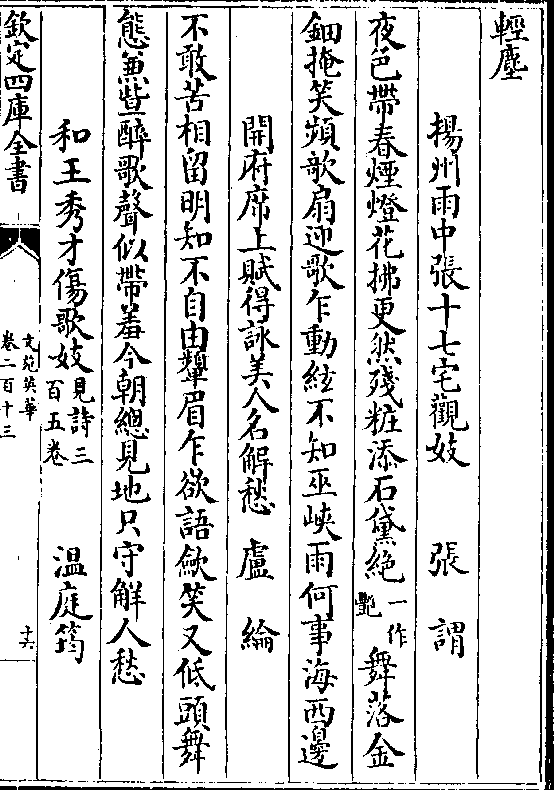 輕塵
揚州雨中張十七宅觀妓　張謂
夜色帶春煙燈花拂更然殘粧添石黛絶一作艶舞落金
鈿掩笑頻歌扇迎歌乍動絃不知巫峽雨何事海西邊
開府席上賦得詠美人名解愁　盧綸
不敢苦相留明知不自由顰眉乍欲語歛笑又低頭舞
態兼些醉歌聲似帶羞今朝總見地只守解人愁
和王秀才傷歌妓見詩三百五卷　温庭筠
欽定四庫全書
文苑英華
卷二百十三
十六